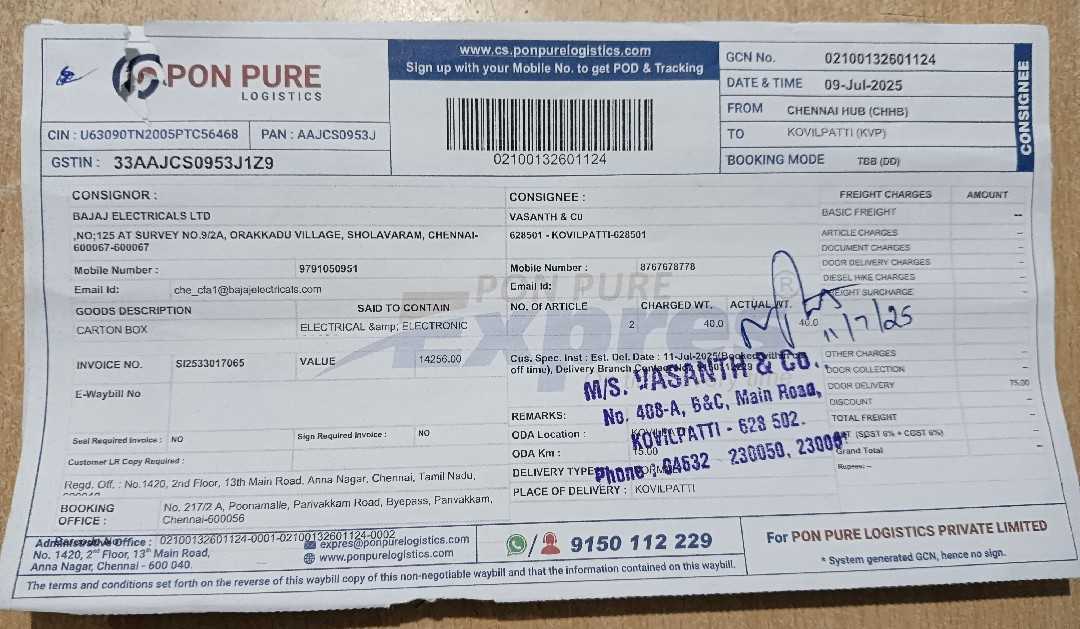 PON PURE
LOGISTICS
CIN : U63090TN2005PTC56468
PAN : AAJCS0953J
GSTIN : 33AAJCS0953J1Z9
www.cs.ponpurelogistics.com
Sign up with your Mobile No. to get POD & Tracking
02100132601124
GCN No. 02100132601124
DATE & TIME 09-Jul-2025
FROM CHENNAI HUB (CHHB)
TO KOVILPATTI (KVP)
BOOKING MODE TBB (DD)
CONSIGNEE
CONSIGNOR :
BAJAJ ELECTRICALS LTD
,NO;125 AT SURVEY NO.9/2A, ORAKKADU VILLAGE, SHOLAVARAM, CHENNAI-
600067-600067
Mobile Number : 9791050951
Email Id: che_cfa1@bajajelectricals.com
GOODS DESCRIPTION SAID TO CONTAIN
CARTON BOX ELECTRICAL &amp; ELECTRONIC
INVOICE NO. SI2533017065 VALUE 14256.00
E-Waybill No
Seal Required Invoice : NO Sign Required Invoice : NO
Customer LR Copy Required :
Regd. Off. : No.1420, 2nd Floor, 13th Main Road, Anna Nagar, Chennai, Tamil Nadu,
BOOKING OFFICE : No. 217/2 A, Poonamalle, Parivakkam Road, Byepass, Panvakkam,
Chennai-600056
CONSIGNEE :
VASANTH & CU
628501 - KOVILPATTI-628501
Mobile Number : 8767678778
Email Id:
NO. Of ARTICLE CHARGED WT. ACTUAL WT.
2 40.0 40.0
PON PURE
Express
Cus. Spec. Inst : Est. Del. Date : 11-Jul-2025(Booked within
off time), Delivery Branch
REMARKS:
ODA Location :
ODA Km : 15.00
DELIVERY TYPE
PLACE OF DELIVERY : KOVILPATTI
M/S. VASANTH & CO.
No. 408-A, B&C, Main Road,
KOVILPATTI - 628 502.
Phone : 04632 230050,
11/7/25
FREIGHT CHARGES AMOUNT
BASIC FREIGHT --
ARTICLE CHARGES --
DOCUMENT CHARGES --
DOOR DELIVERY CHARGES --
DIESEL HIKE CHARGES --
FREIGHT SURCHARGE --
OTHER CHARGES --
DOOR COLLECTION --
DOOR DELIVERY 75.00
DISCOUNT --
TOTAL FREIGHT --
(SGST 6% + CGST 6%) --
Grand Total --
Rupees: --
Administrative Office : 02100132601124-0001-02100132601124-0002
No. 1420, 2nd Floor, 13th Main Road,
Anna Nagar, Chennai - 600 040.
expres@ponpurelogistics.com
www.ponpurelogistics.com
9150 112 229
For PON PURE LOGISTICS PRIVATE LIMITED
* System generated GCN, hence no sign.
The terms and conditions set forth on the reverse of this waybill copy of this non-negotiable waybill and that the information contained on this waybill.